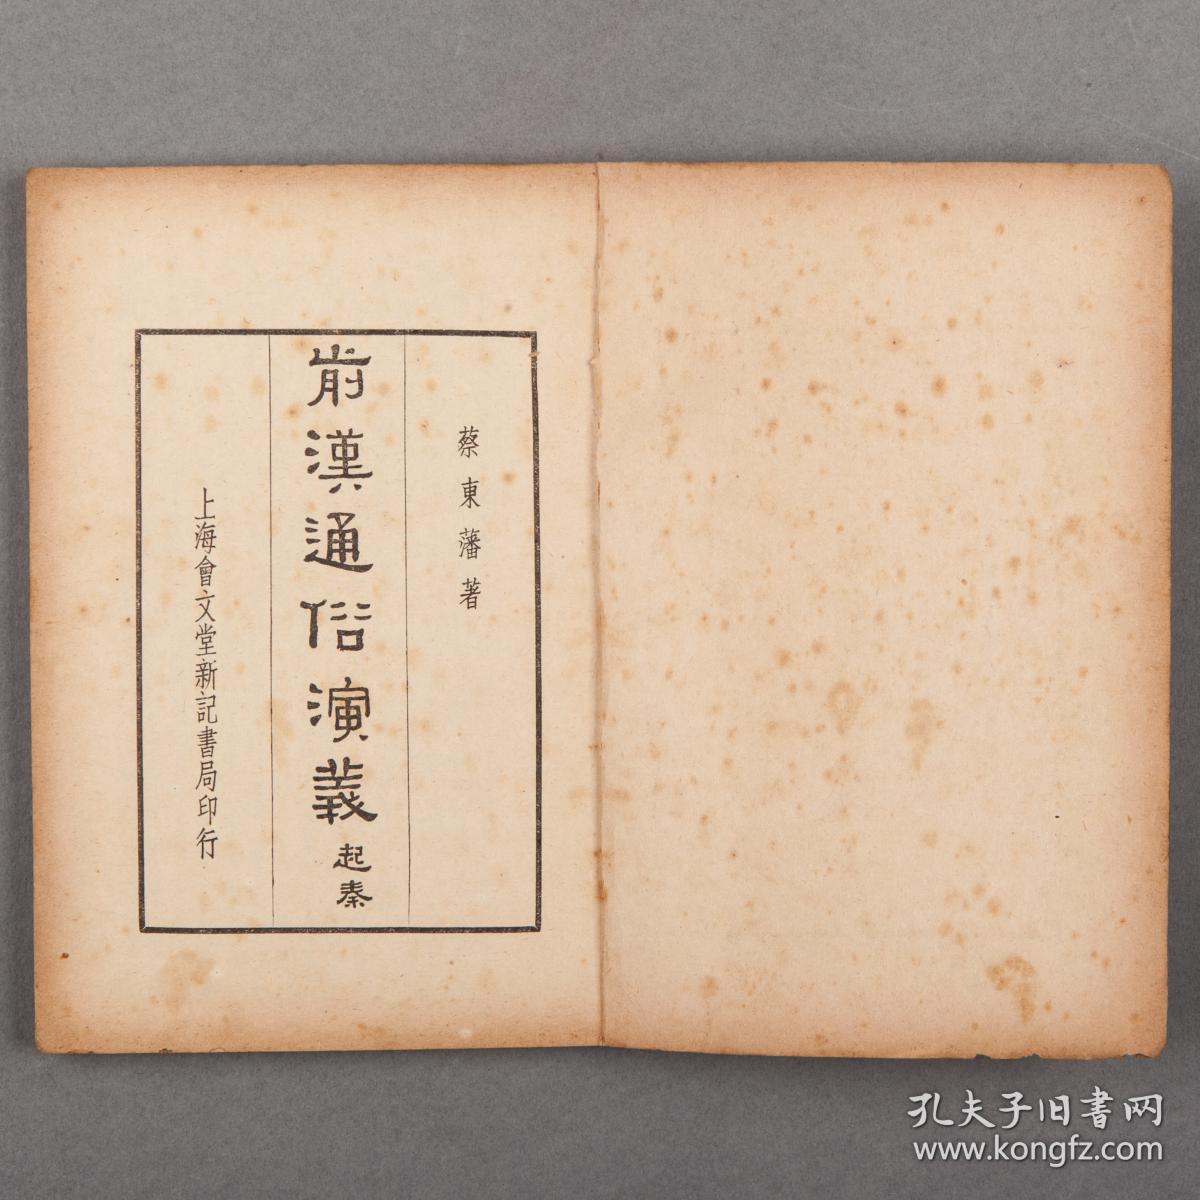 蔡東藩著
前漢通俗演義起秦
上海會文堂新記書局印行
孔夫子旧书网
www.kongfz.com